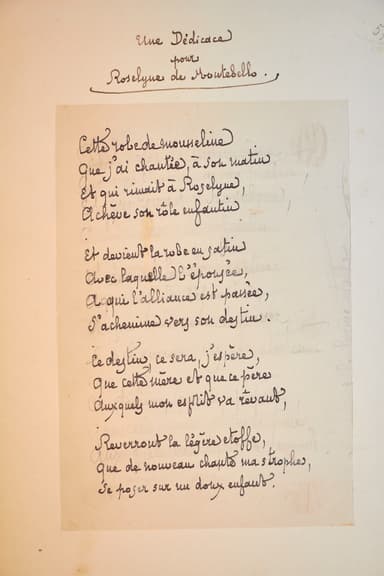 Une Dédicace
pour
Roselyne de Montebello.
Cette robe de mousseline
Que j'ai chantée, à son matin
Et qui rimait à Roselyne,
Achève son rôle enfantin
Et devient la robe en satin
Avec laquelle l'épousée,
A qui l'alliance est passée,
S'achemine vers son destin.
Ce destin, ce sera, j'espère,
Que cette mère et que ce père
Auxquels mon esprit va rêvant,
Reverront la légère étoffe,
Que de nouveau chante ma strophe,
Se poser sur un doux enfant.